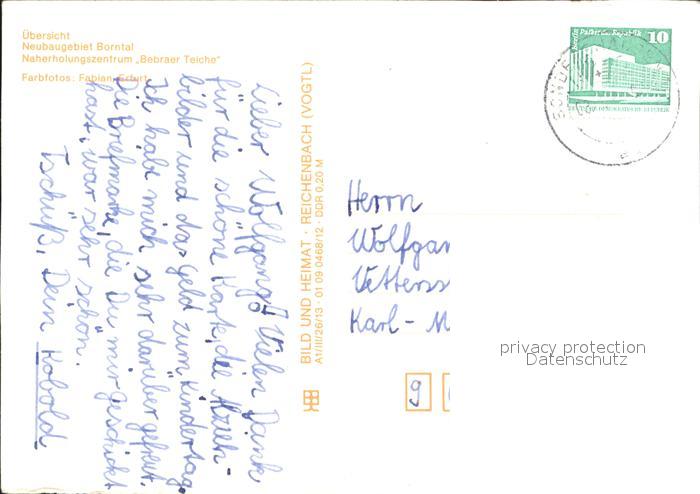 Übersicht
Neubaugebiet Borntal
Naherholungszentrum „Bebraer Teiche"
Farbfotos: Fabian, Erfurt
Lieber Wolfgang! Vielen Dank
für die schöne Karte, die Abzieh-
bilder und das Geld zum Kindertag.
Ich habe mich sehr darüber gefreut.
Die Briefmarke, die Du mir geschickt
hast, war sehr schön.
Tschüß, Dein Kobold
BILD UND HEIMAT · REICHENBACH (VOGTL)
A1/III/26/13 · 01 09 0468/12 · DDR 0,20 M
Berlin Palast der Republik 10
DEUTSCHE DEMOKRATISCHE REPUBLIK
Herrn
Wolfgan
Vetters
Karl-M
9
privacy protection
Datenschutz